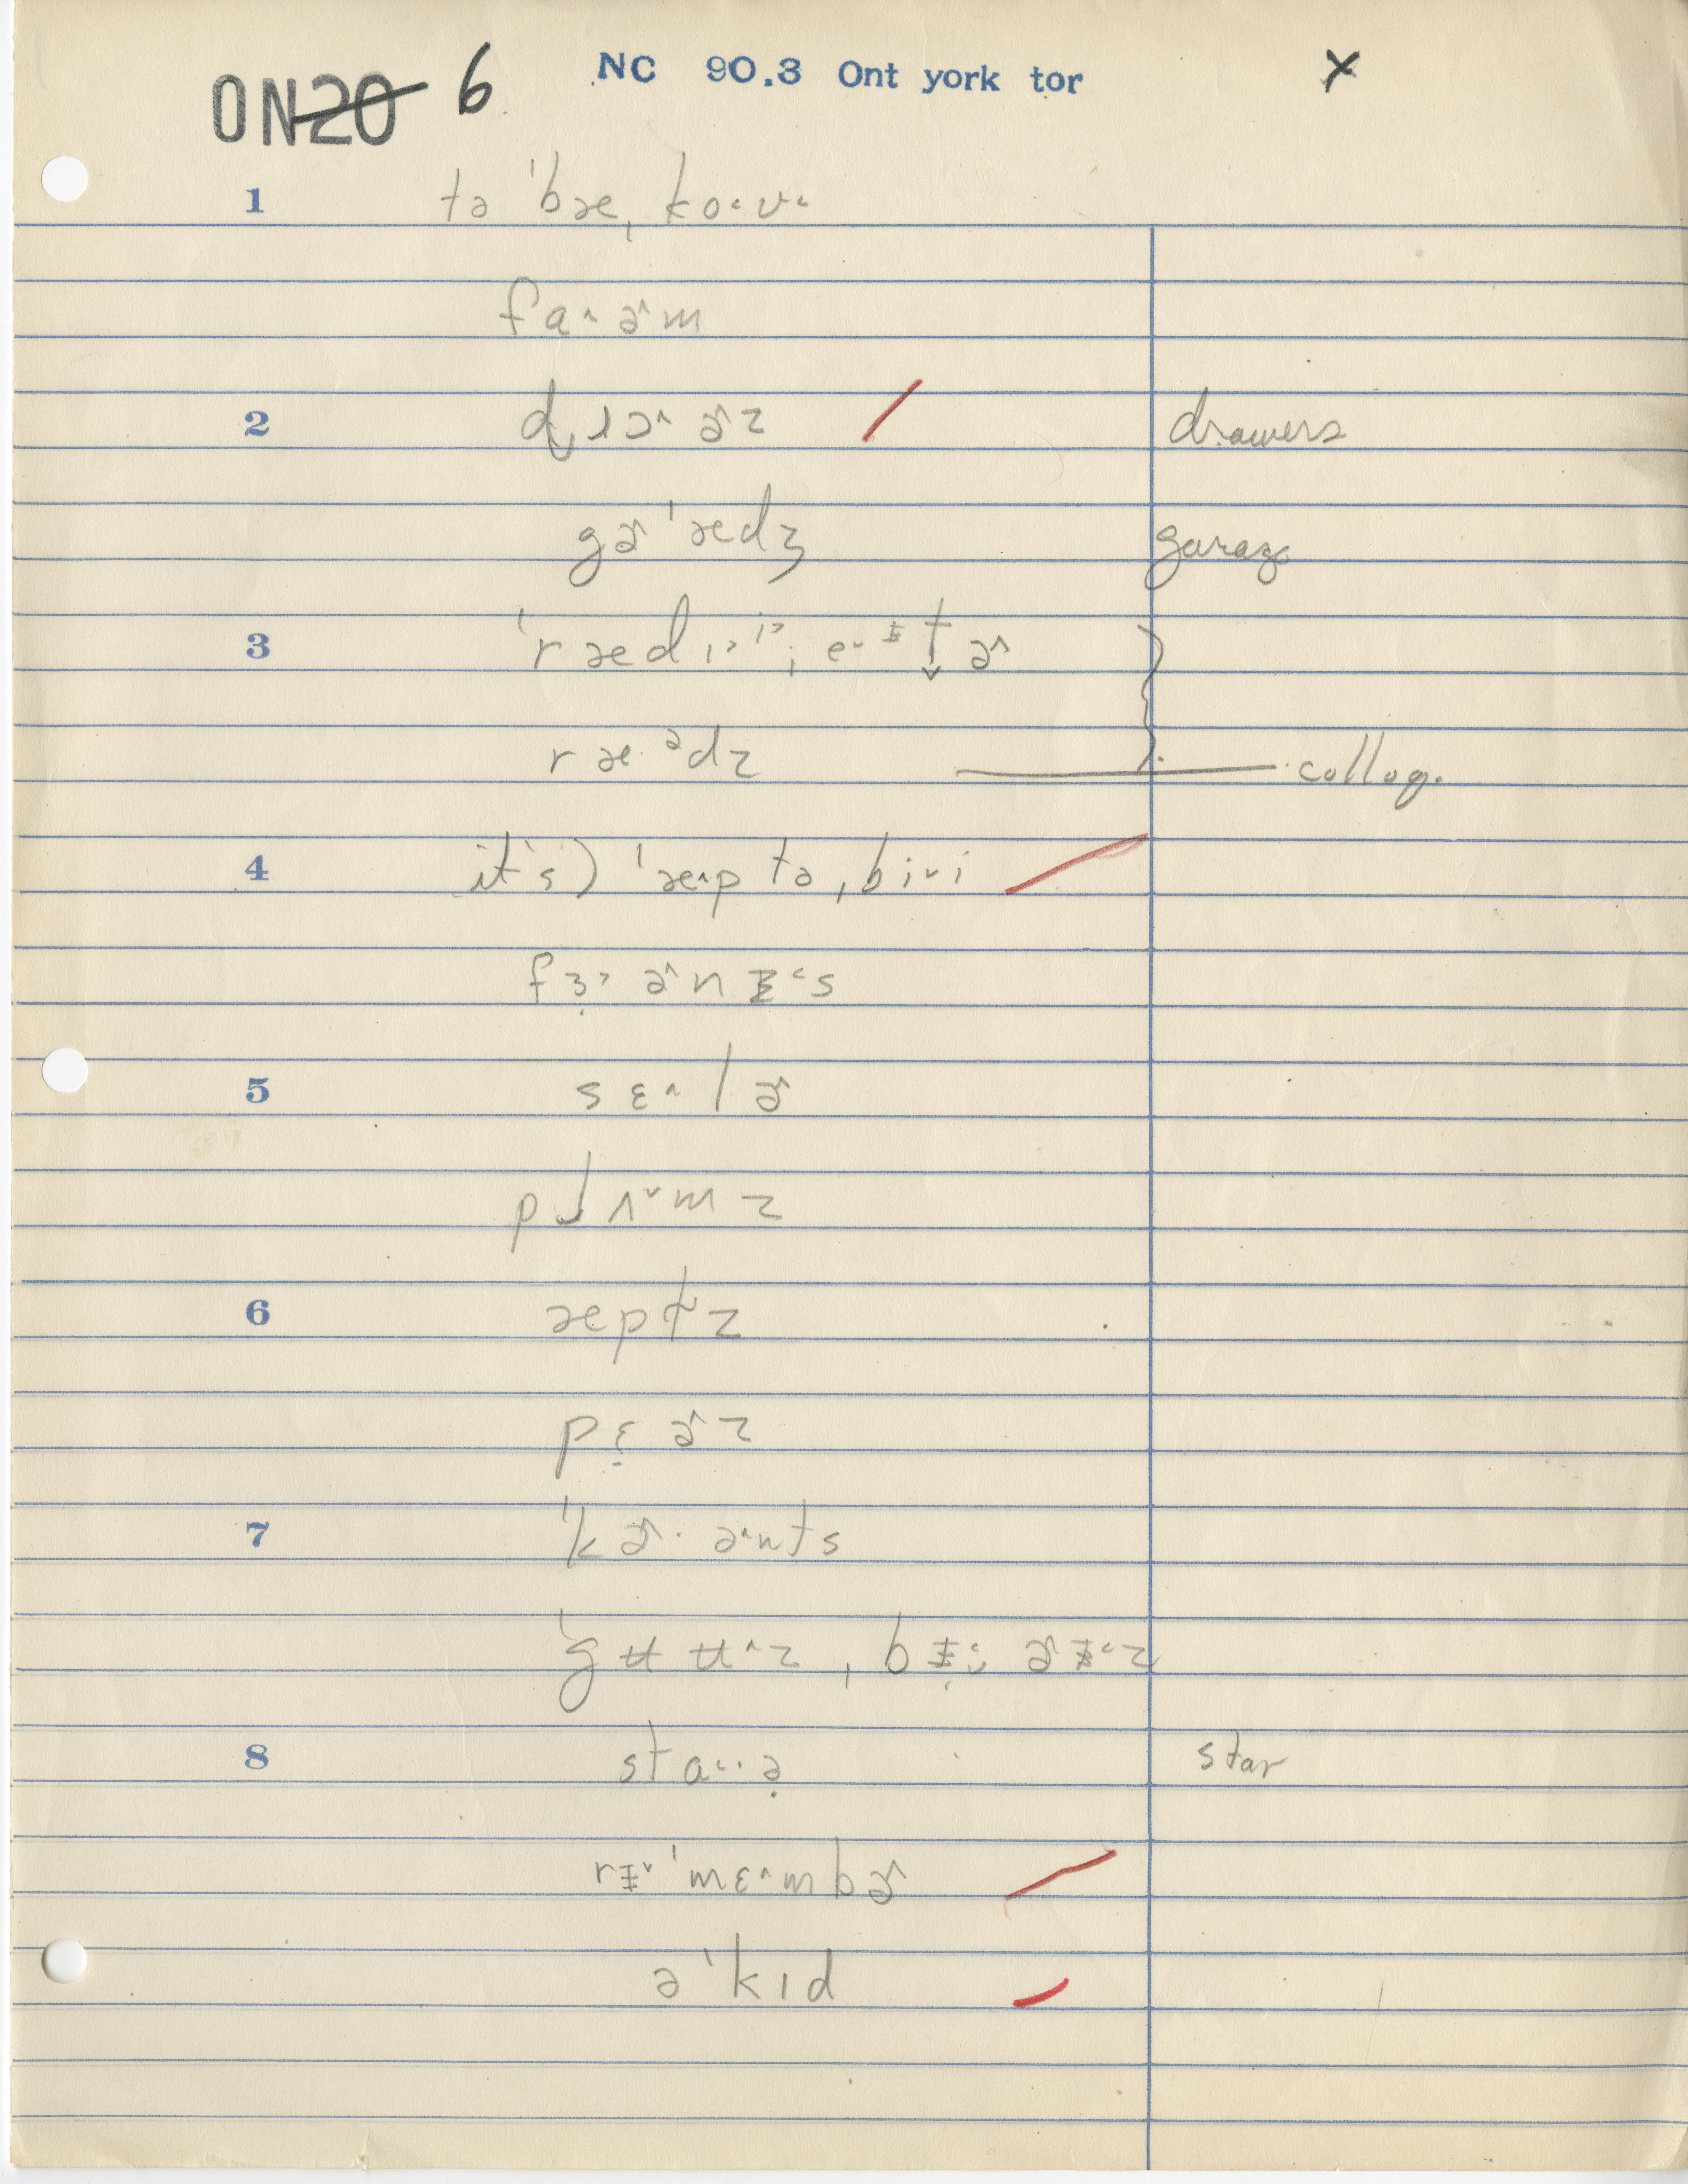 ON20 6 NC 90.3 Ont york tor x
1 tə ˈbæˌko˂ʊ˂
fɑ˄ɚm
2 dɹɔ˄ɚz drawers
gɚˈædʒ garage
3 ˈrædɪ˃i˃ˌe˅ᵻt̬ɚ
ræ·ᵊdz colloq.
4 it's) ˈæ˄p təˌbi˅i
fɜ˃ɚnᵻ˂s
5 sɛ˄lɚ
pɹʌ˅mz
6 æptz
pɛ̣ɚz
7 ˈkɚ·ə˄nts
ˈgʉʉ˄zˌbᵻ˂ɚᵻ˂z
8 stɑ˂·ə̣ star
rᵻ˅ˈmɛ˄mbɚ
əˈkɪd